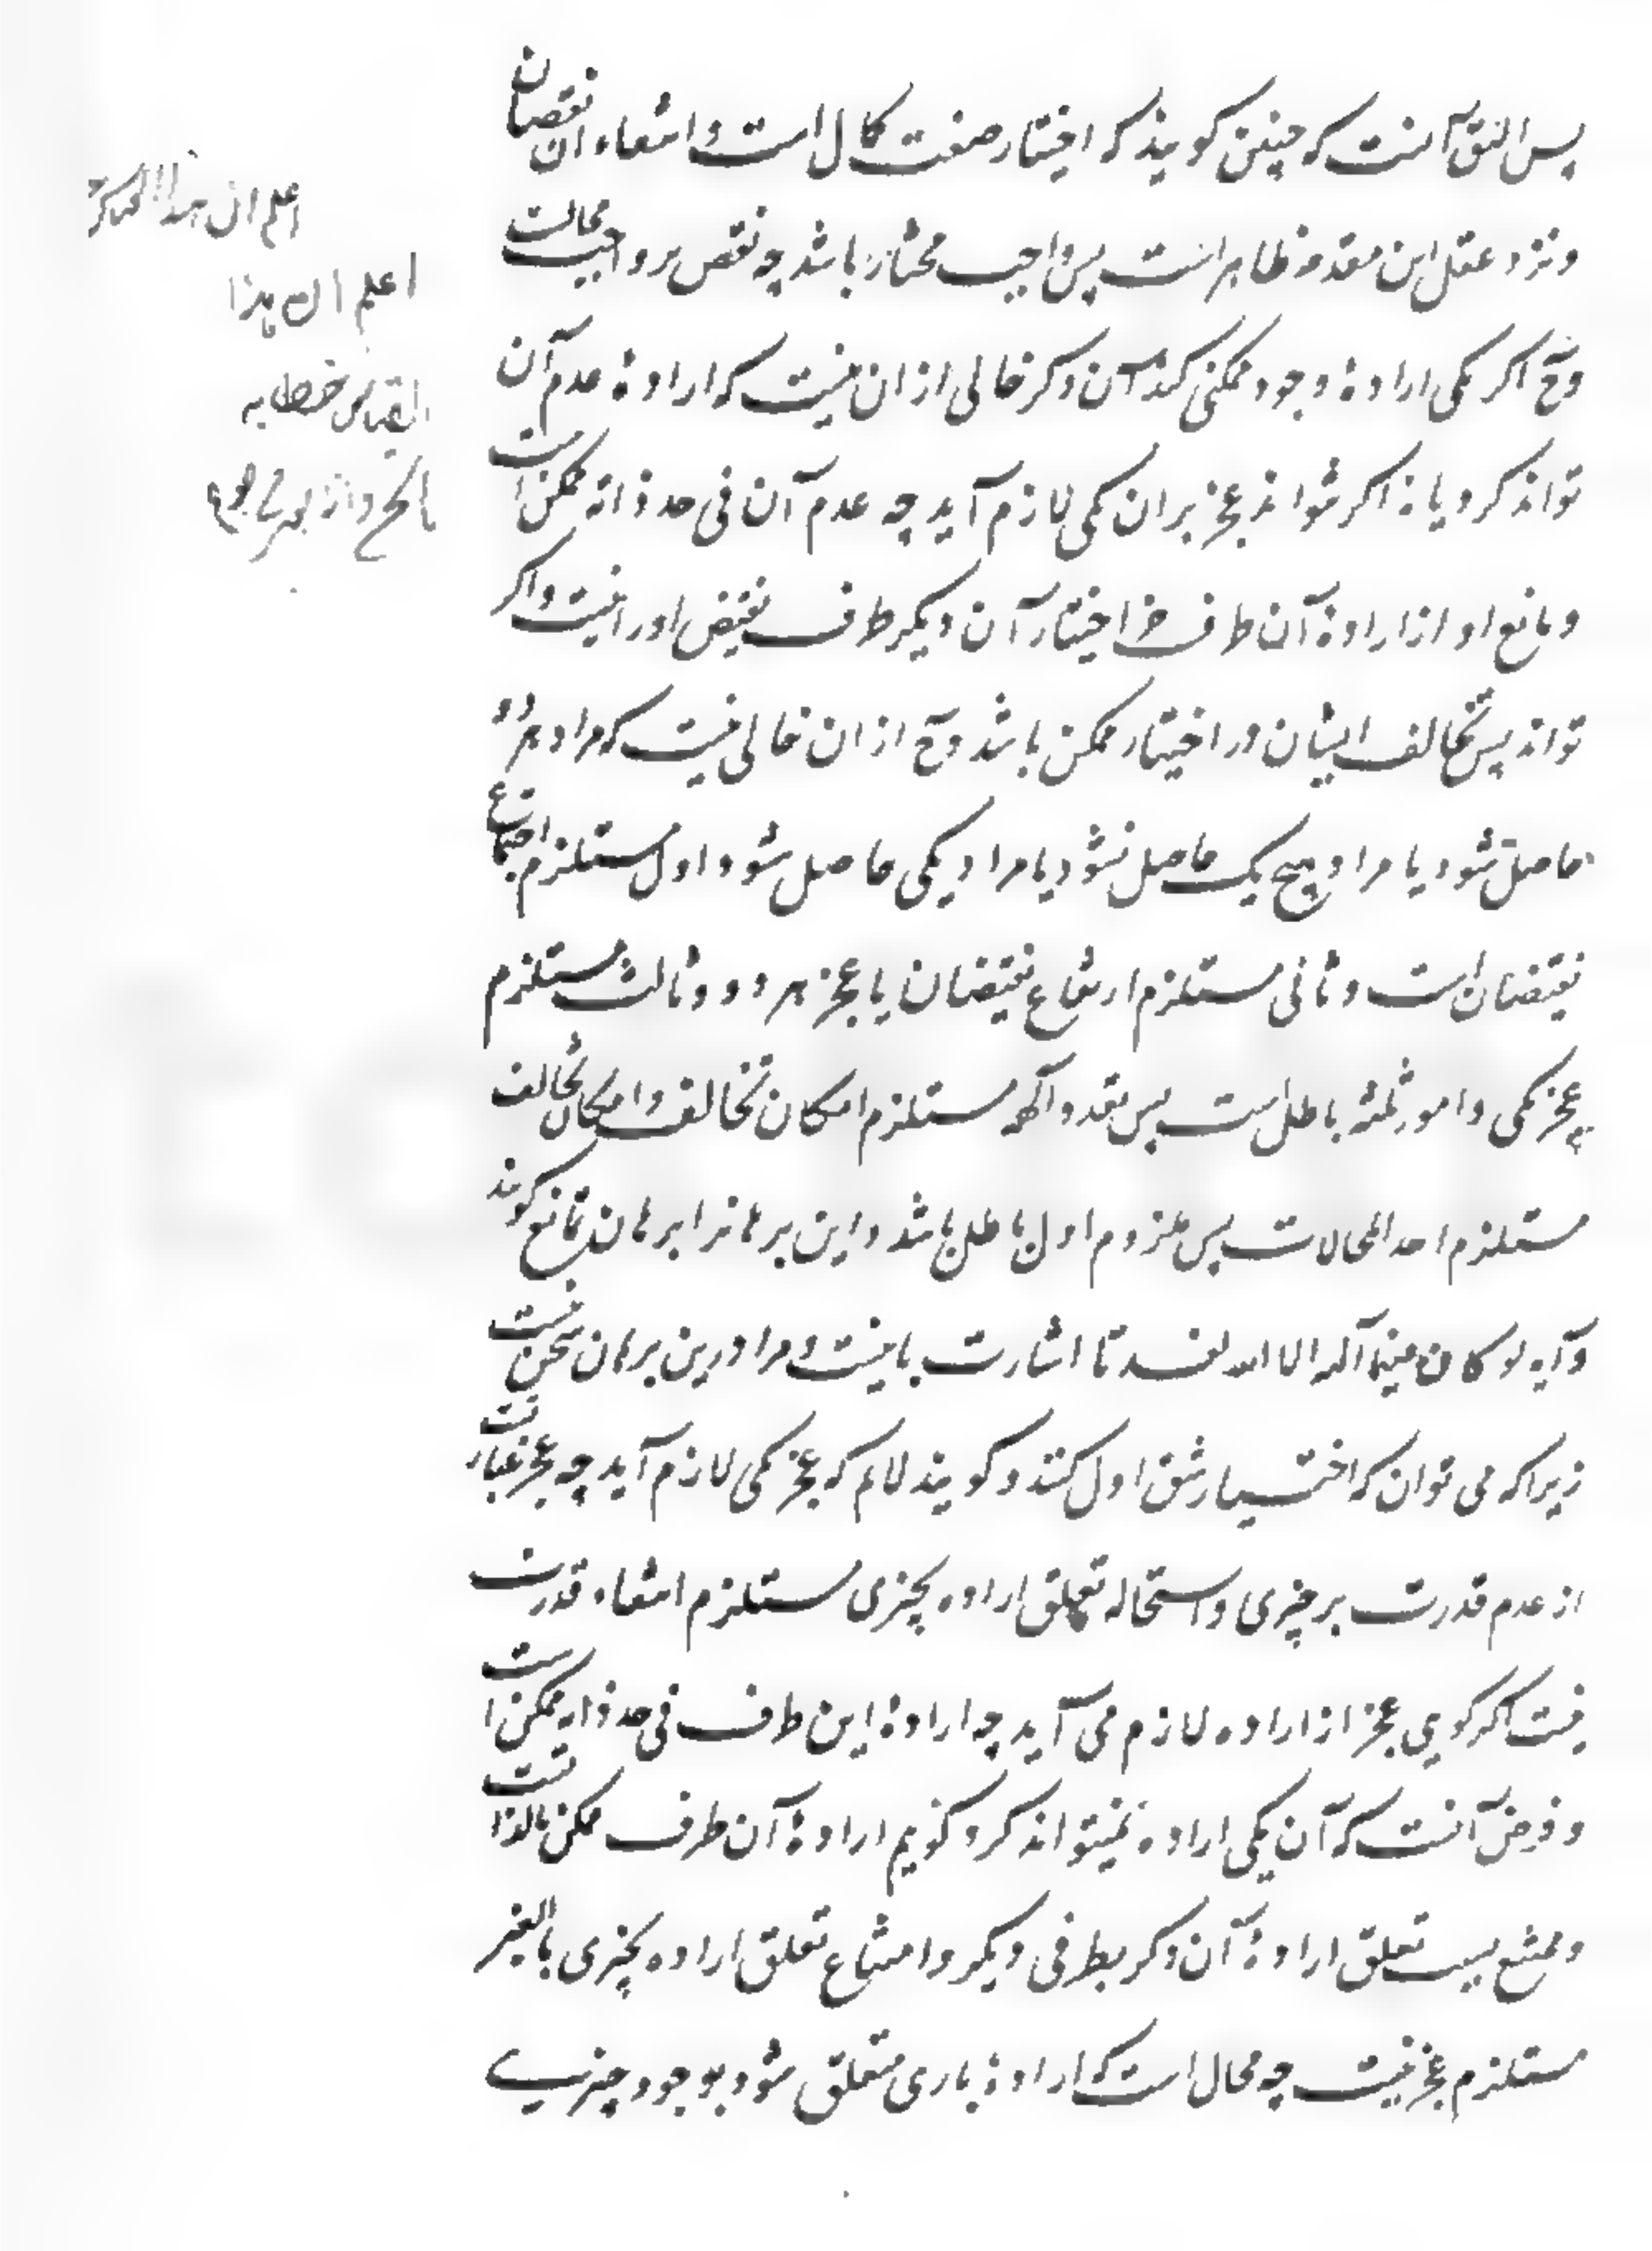 پس الیق آنست که چنین کویند که اختیار صفت کمال است و انتفاء ان نقصان
و نزد عقل این مقدمه ظاهر است پس واجب مختار باشد چه نقص بر واجب محالست
وح اکر یکی ارادهٔ وجود ممکنی کند آن دکر خالی از ان نیست که ارادهٔ عدم آن
تواند کرد یا نه اکر نتواند عجز بر ان یکی لازم آید چه عدم آن فی حد ذاته ممکن است
و مانع او از ارادهٔ آن طرف جز اختیار آن دیکر طرف نقیض او را نیست و اکر
تواند پس تخالف ایشان در اختیار ممکن باشد وح از ان خالی نیست که مراد هر دو
حاصل شود یا مراد هیچ یک حاصل نشود یا مراد یکی حاصل شود اول مستلزم اجتماع
نقیضان است و ثانی مستلزم ارتفاع نقیضان یا عجز هر دو و ثالث مستلزم
عجز یکی و امور ثلثه باطل است پس تعدد آلهه مستلزم امکان تخالف و امکان تخالف
مستلزم احد المحالات پس ملزوم اول باطل باشد و این برهانرا برهان تمانع کویند
و آیه لو کان فیهما آلهه الا الله لفسدتا اشارت باینست و مرا درین برهان سخن است
زیرا که می توان که اختیار شق اول کنند و کویند لانم که عجز یکی لازم آید چه عجز عبارتست
از عدم قدرت بر چیزی و استحاله تعلق اراده بچیزی مستلزم انتفاء قدرت
نیست اکر کویی عجز از اراده لازم می آید چه ارادهٔ این طرف فی حد ذاته ممکن است
و فرض آنست که آن یکی اراده نمیتواند کرد کوئیم ارادهٔ آن طرف ممکن بالذات
و ممتنع بسبب تعلق ارادهٔ آن دکر بطرفی دیکر و امتناع تعلق اراده بچیزی بالغیر
مستلزم عجز نیست چه محال است که ارادهٔ باری متعلق شود بوجود چیزی
اعلم ان هذا
اعلم ان هذا
القیاس خطابه